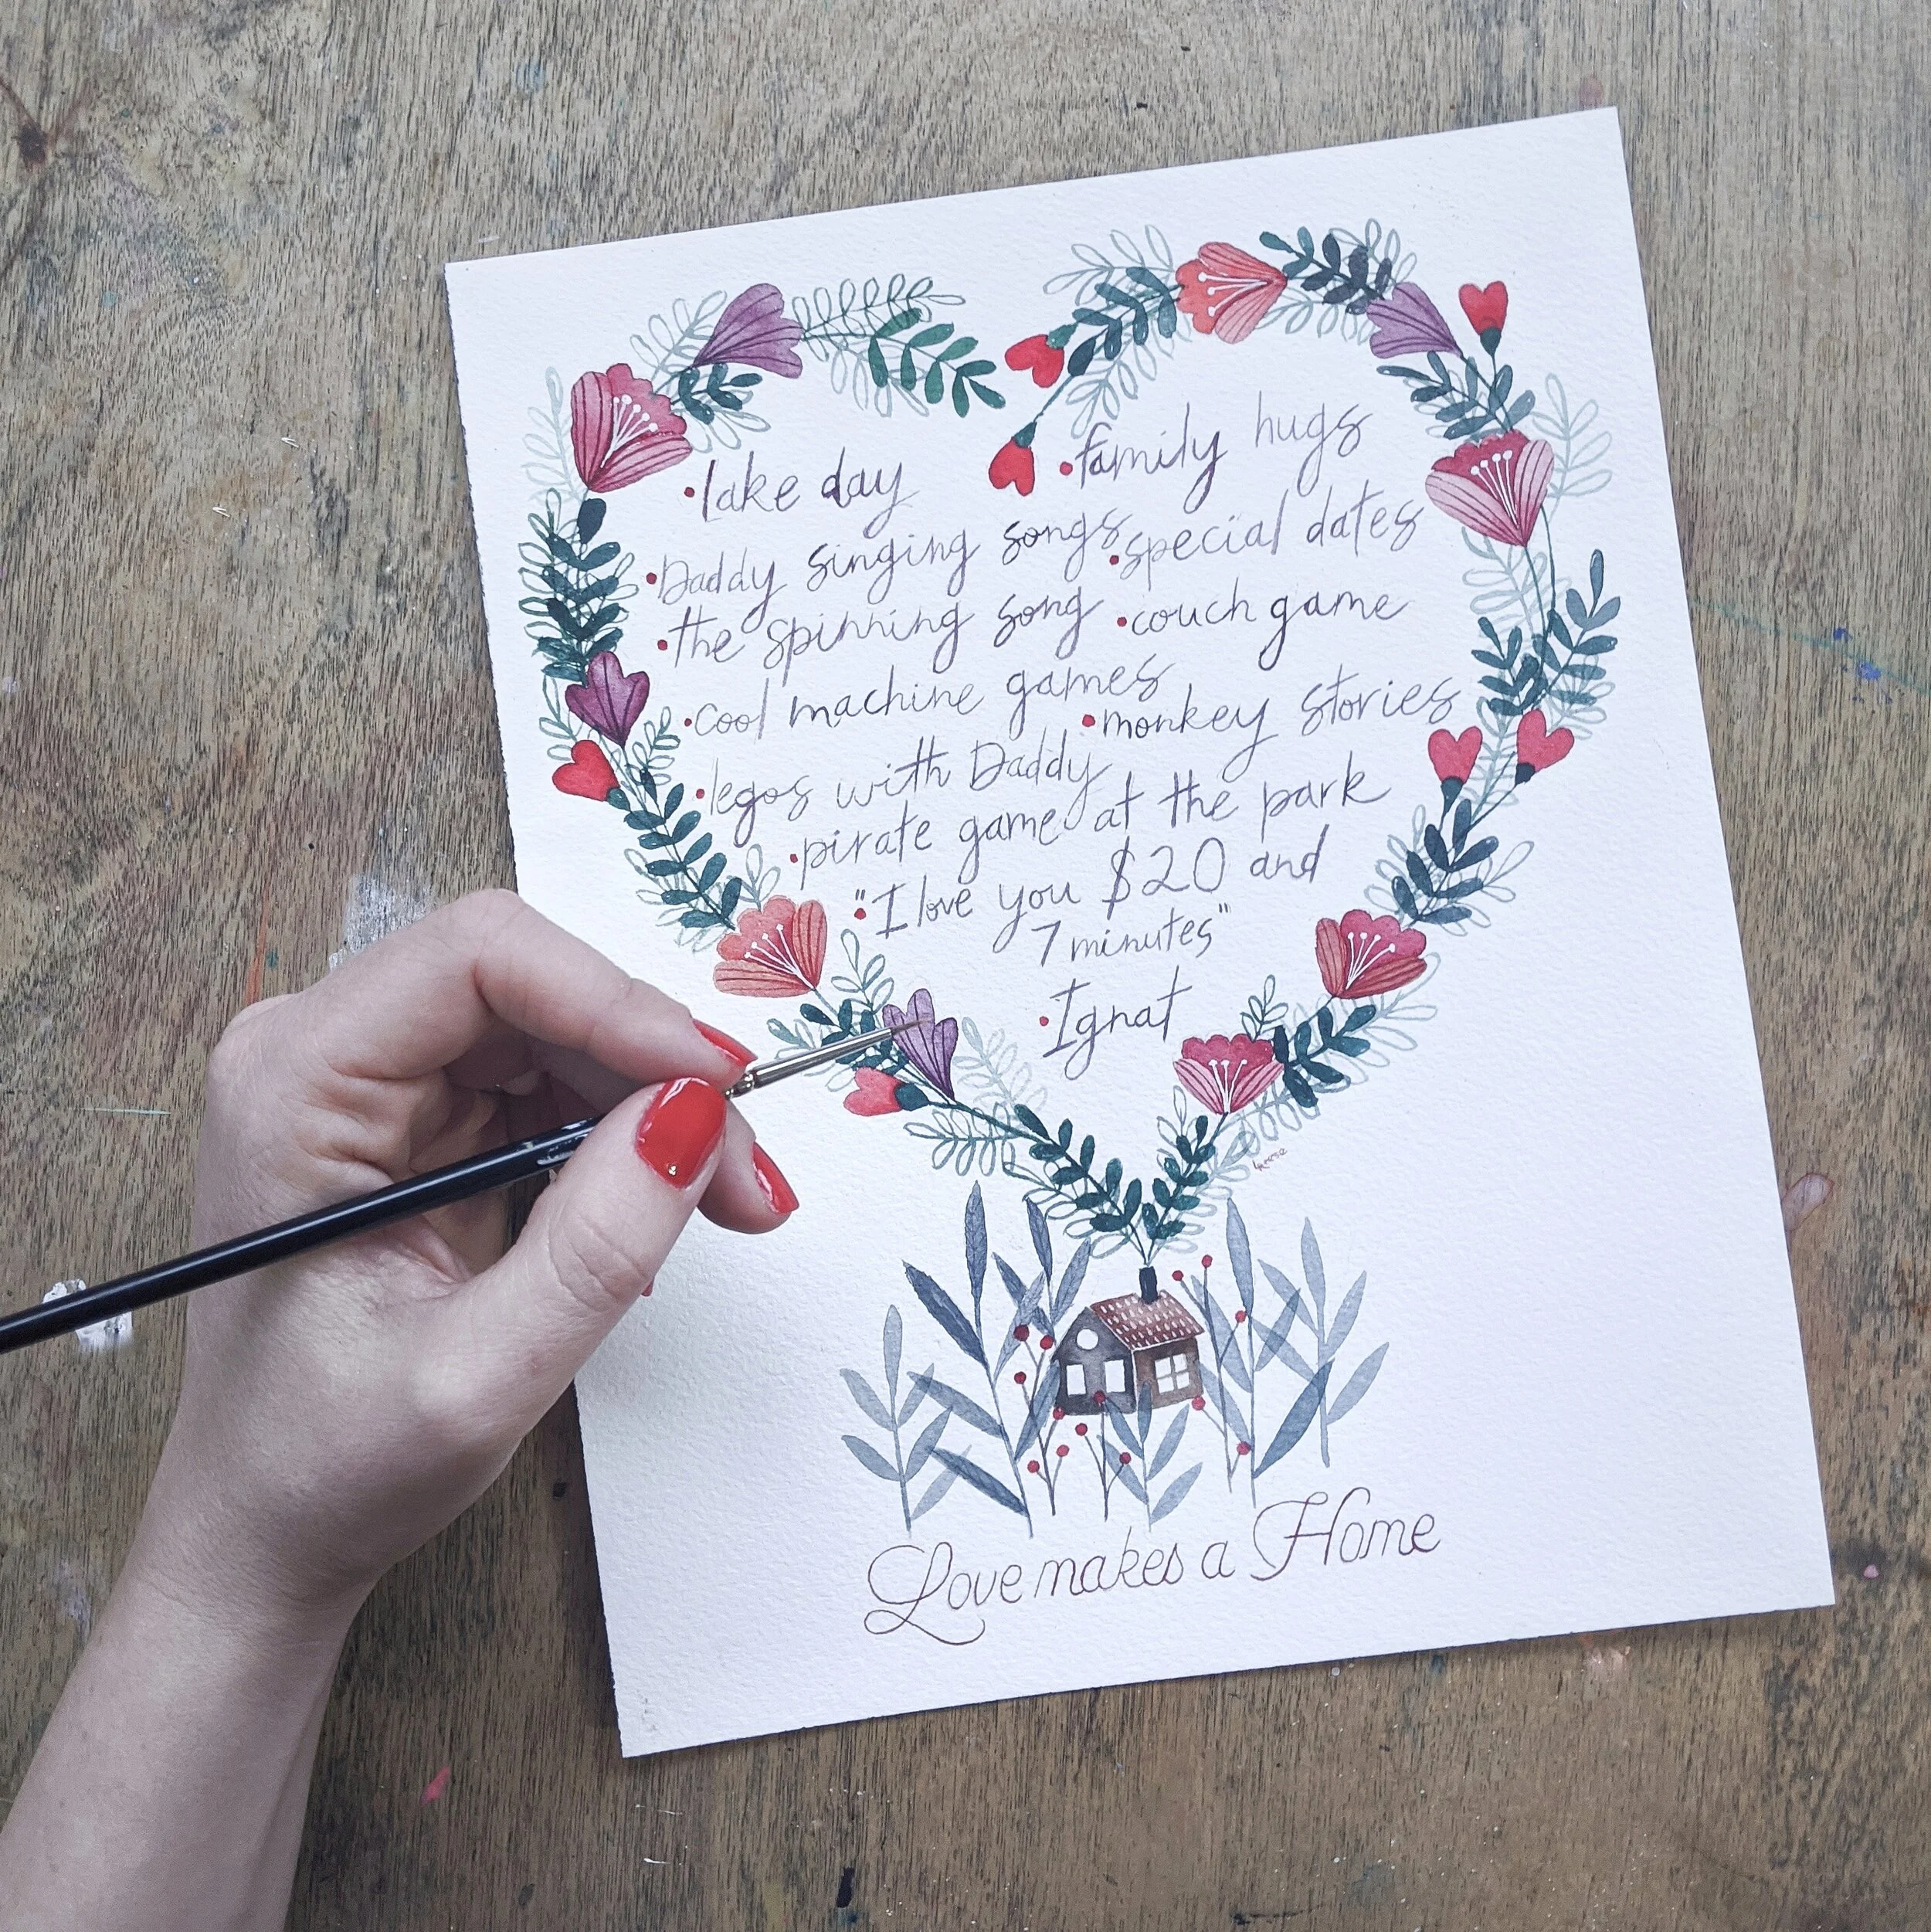 •lake day •family hugs
•Daddy singing songs •special dates
•the spinning song •couch game
•cool machine games •monkey stories
•legos with Daddy
•pirate game at the park
•"I love you $20 and
7 minutes"
•Ignat
Love makes a Home